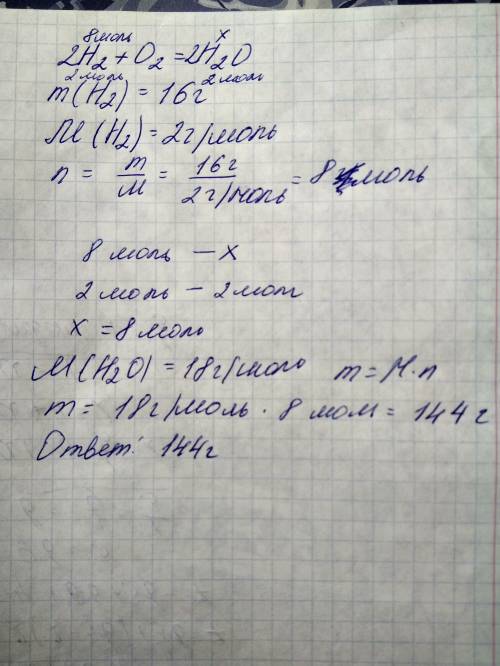 8 моль x
2H₂ + O₂ = 2H₂O
2 моль 2 моль
m(H₂) = 16 г
M(H₂) = 2 г/моль
n = m/M = 16 г/2 г/моль = 8 моль
8 моль – x
2 моль – 2 моль
x = 8 моль
M(H₂O) = 18 г/моль m = M·n
m = 18 г/моль · 8 моль = 144 г
Ответ: 144 г